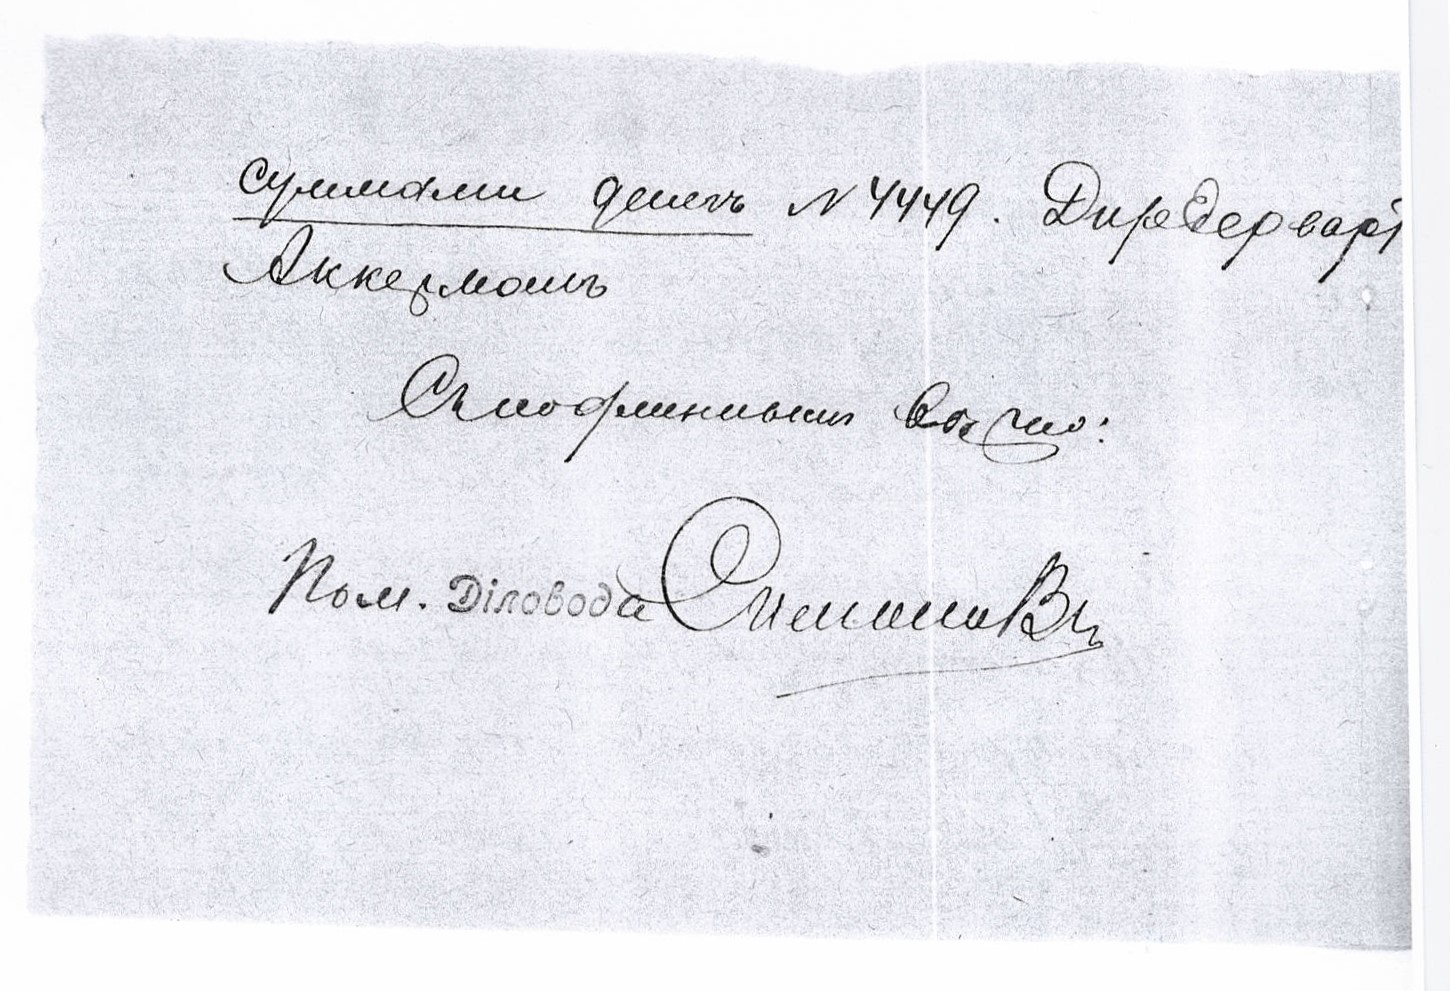 суммами денегъ № 4449. ДирДержварт
Аккерманъ
Съ подлиннымъ вѣрно:
Пом. Діловода Симонов